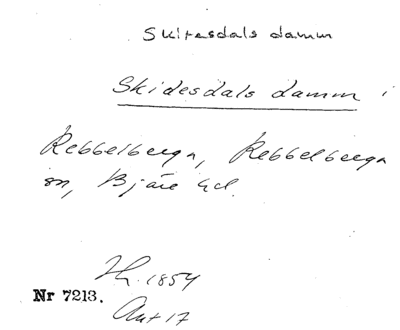 Skitesdals damm
Skidesdals damm i
Rebbelberga, Rebbelberga
sn, Bjäre hd.
Th. 1854
Nr 7213.
Ant 17